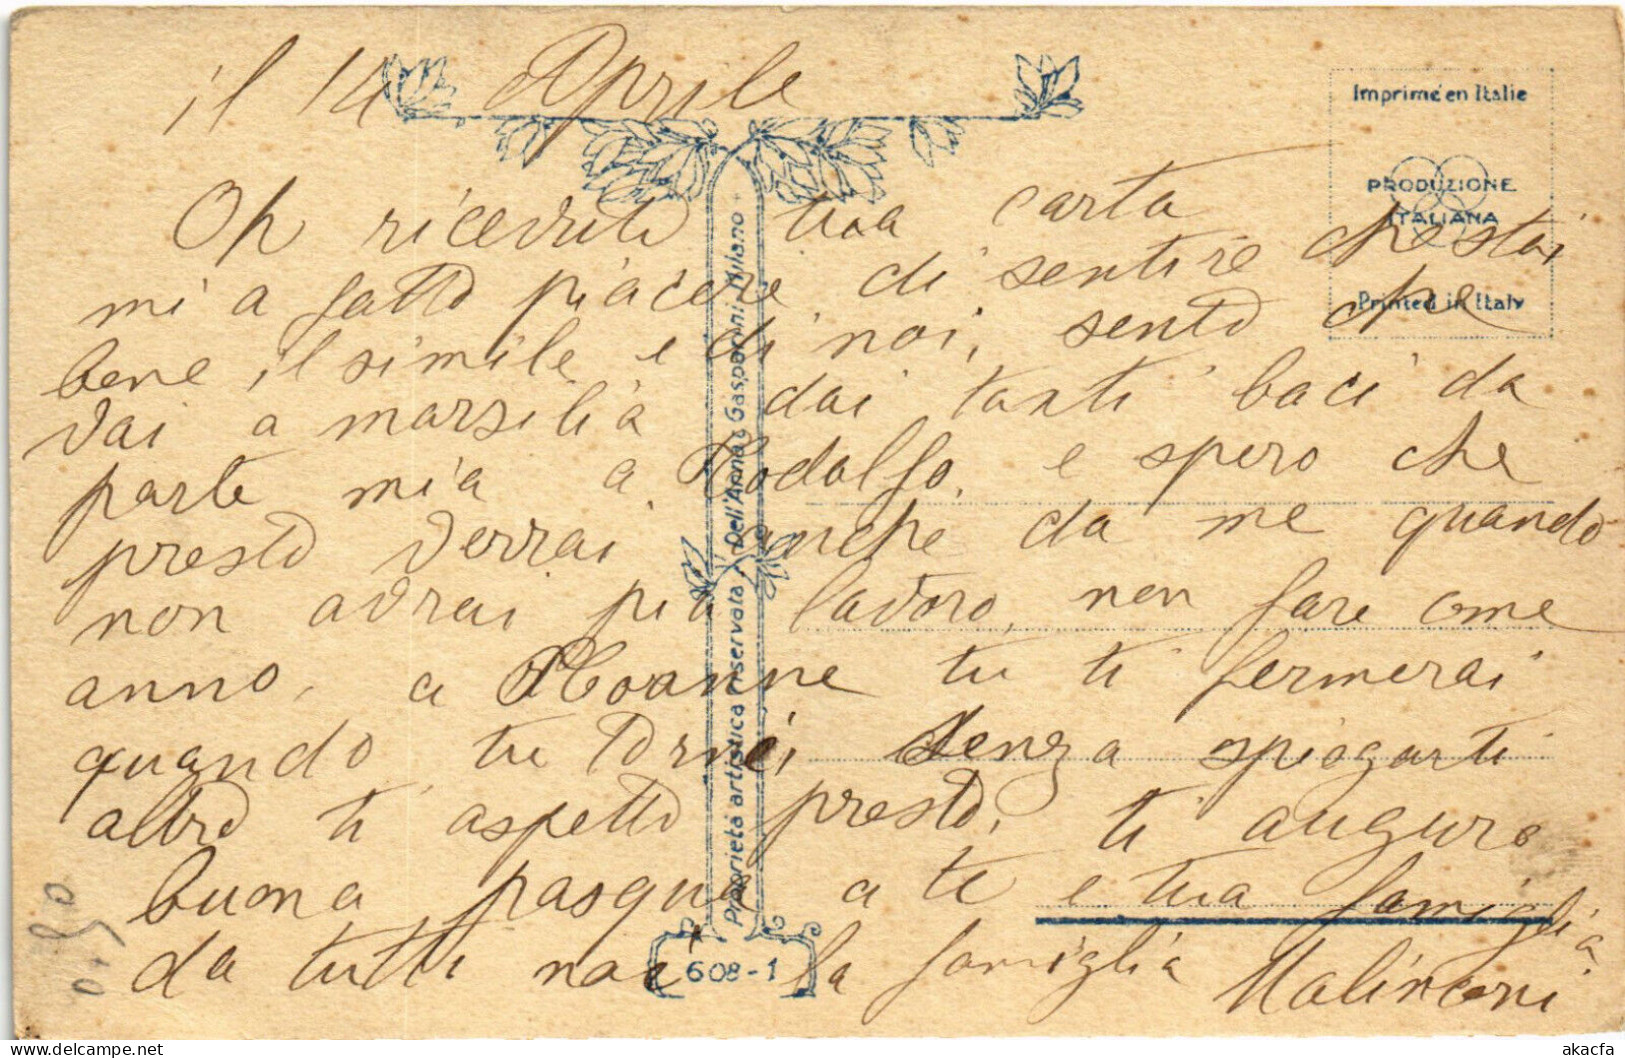 il 14 Aprile
Oh ricevuto tua carta
mi a fatto piacere di sentire che stai
bene il simile e di noi, sento che
vai a marsilia dai tanti baci da
parte mia a Rodolfo, e spero che
presto verrai anche da me quando
non avrai più lavoro, non fare come
anno, a Roanne tu ti fermerai
quando tu tornei senza spiegarti
altro ti aspetto presto, ti auguro
buona pasqua a te e tua famiglia
da tutti noi la famiglia Malinconi
Imprimé en Italie
PRODUZIONE
ITALIANA
Printed in Italy
Proprietà artistica riservata - Dell'Anna & Gasparini - Milano
608-1
akacfa